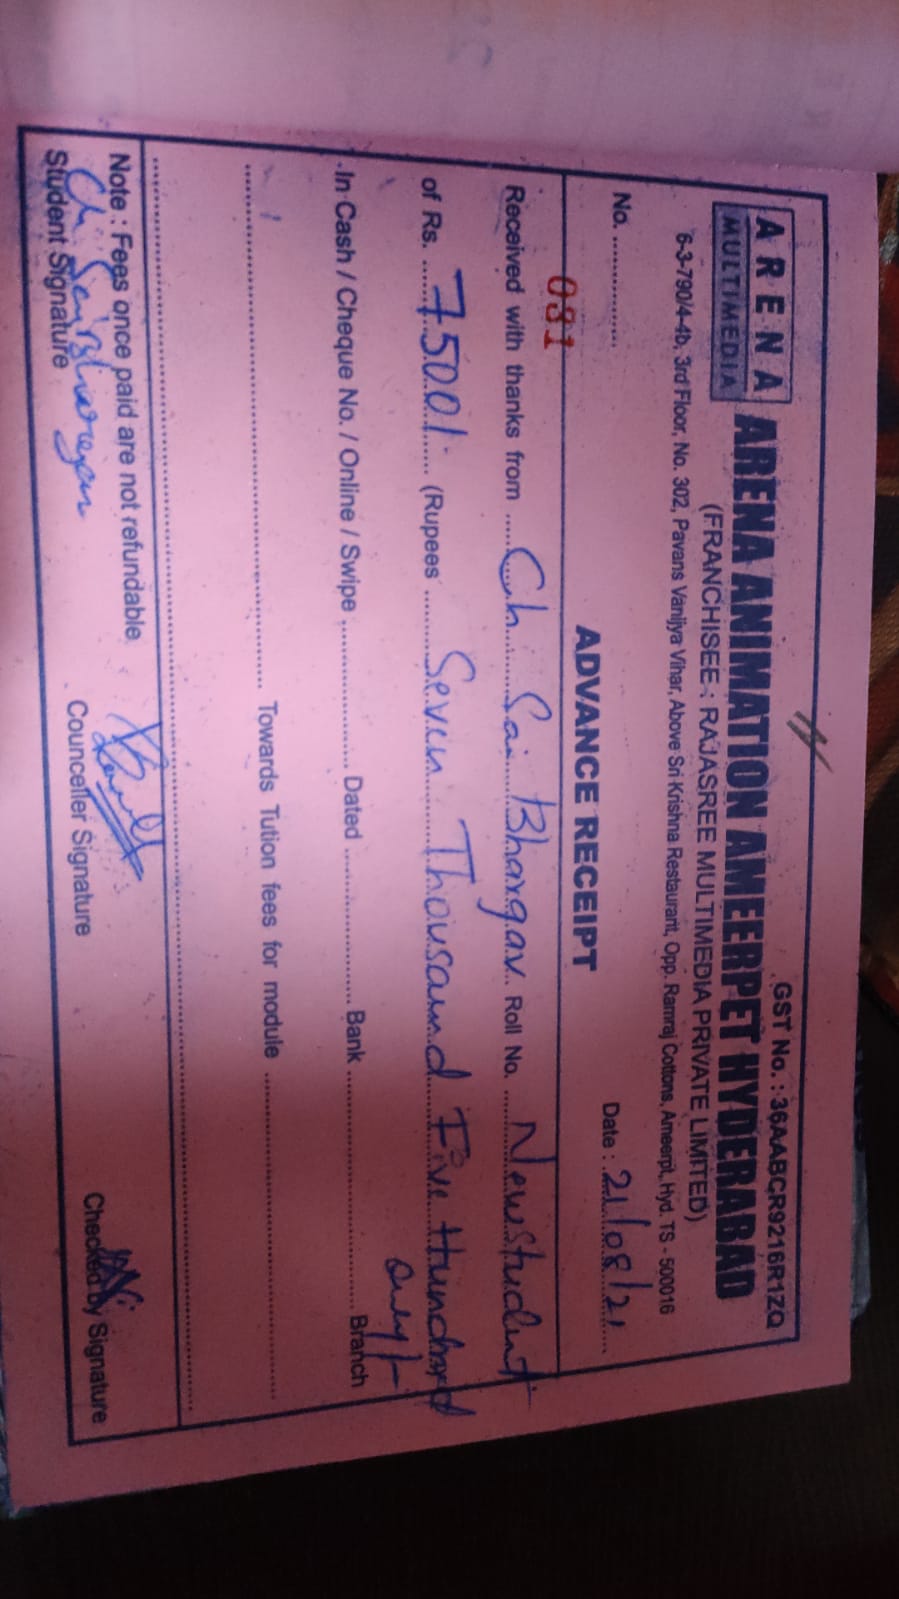 GST No. : 36AABCR9216R1ZQ
ARENA
MULTIMEDIA
ARENA ANIMATION AMEERPET HYDERABAD
(FRANCHISEE : RAJASREE MULTIMEDIA PRIVATE LIMITED)
6-3-790/4-4b, 3rd Floor, No. 302, Pavans Vanijya Vihar, Above Sri Krishna Restaurant, Opp. Ramraj Cottons, Ameerpt, Hyd. TS - 500016
No. .............. Date : 21/08/21
ADVANCE RECEIPT
031
Received with thanks from ..... Ch Sai Bhargav Roll No. ..... New Student
of Rs. ..... 7500/- ..... (Rupees ..... Seven Thousand Five Hundred
only/-
In Cash / Cheque No. / Online / Swipe .................. Dated .................. Bank .................. Branch
.................. Towards Tution fees for module ..................
Note : Fees once paid are not refundable
Student Signature Counceller Signature Checked by Signature